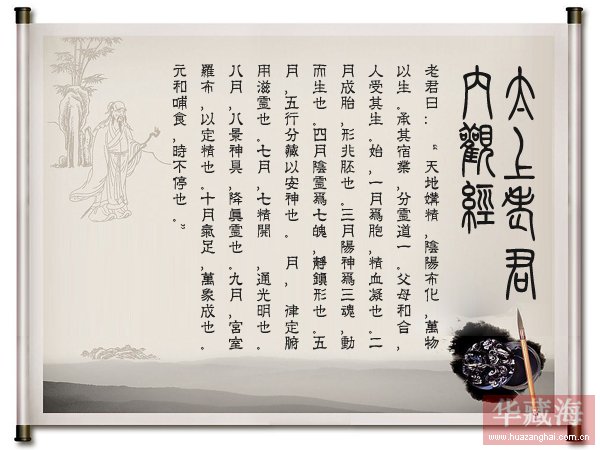 太上老君
内觀經
老君曰：“天地媾精，陰陽布化，萬物
以生。承其宿業，分靈道一。父母和合，
人受其生。始，一月爲胞，精血凝也。二
月成胎，形兆胚也。三月陽神爲三魂，動
而生也。四月陰靈爲七魄，靜鎮形也。五
月，五行分藏以安神也。 月， 律定腑
用滋靈也。七月，七精開 ，通光明也。
八月，八景神具，降眞靈也。九月，宮室
羅布，以定精也。十月氣足，萬象成也。
元和哺食，時不停也。”
华藏海
www.huazanghai.com.cn